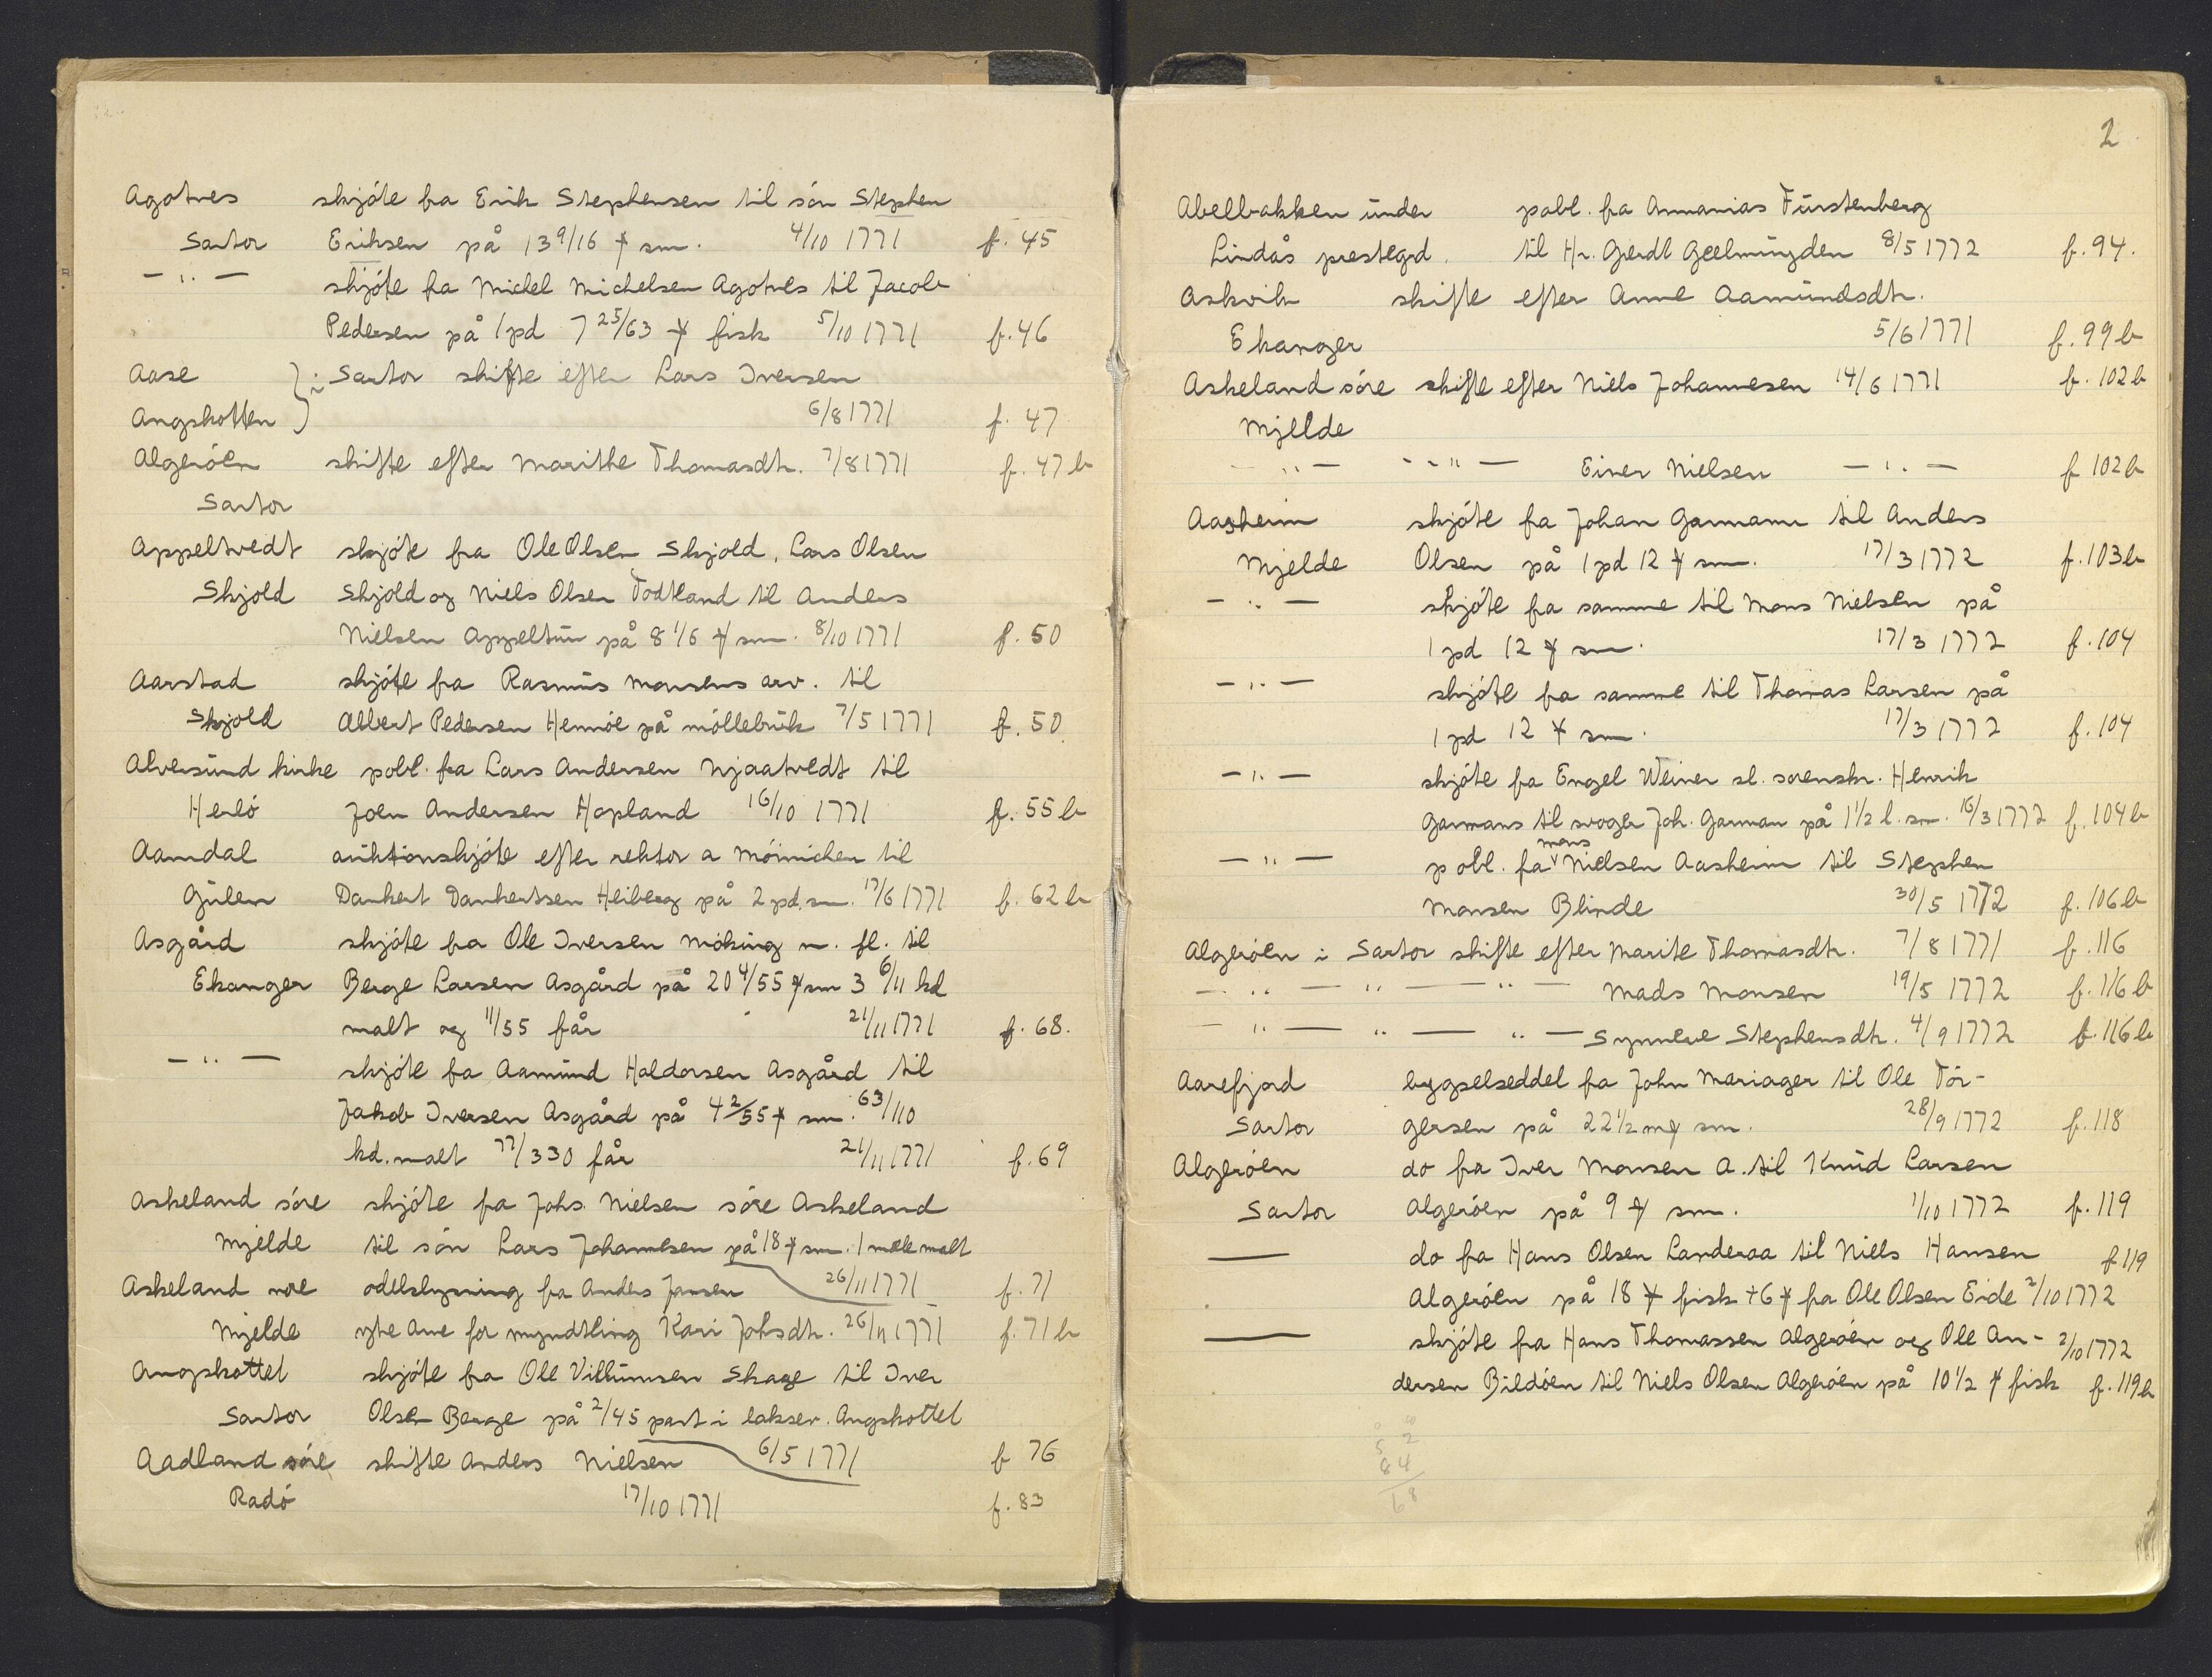 Agotnes skjöte fra Erik Stephensen til sön Stephen
Sartor Eriksen på 13 9/16 ꝟ sm. 4/10 1771 f. 45
— " — skjöte fra Michel Michelsen Agotnes til Jacob
Pedersen på 1 pd 7 25/63 ꝟ fisk 5/10 1771 f. 46
Aase } i Sartor skifte efter Lars Iversen
Angskotten 6/8 1771 f. 47
Algeröen skifte efter Marithe Thomasdtr. 7/8 1771 f. 47 b
Sartor
Appeltvedt skjöte fra Ole Olsen Skjold, Lars Olsen
Skjold Skjold og Niels Olsen Todtland til Anders
Nielsen Appeltun på 8 1/6 ꝟ sm. 8/10 1771 f. 50
Aarstad skjöte fra Rasmus Monsens arv. til
Skjold Albert Pedersen Hennöe på möllebruk 7/5 1771 f. 50
Alversund kirke pobl. fra Lars Andersen Njaatvedt til
Herlö Joen Andersen Hopland 16/10 1771 f. 55 b
Aamdal auktionskjöte efter rektor a Möinichen til
Gulen Dankert Dankertsen Heiberg på 2 pd. sm. 17/6 1771 f. 62 b
Asgård skjöte fra Ole Iversen Möking m. fl. til
Ekanger Berge Larsen Asgård på 20 4/55 ꝟ sm 3 6/11 kd
malt og 11/55 får 21/11 1771 f. 68.
— " — skjöte fra Aamund Haldorsen Asgård til
Jakob Iversen Asgård på 4 2/55 ꝟ sm. 63/110
kd. malt 77/330 får 21/11 1771 f. 69
Askeland söre skjöte fra Johs. Nielsen söre Askeland
Mjelde til sön Lars Johannesen på 18 ꝟ sm. 1 mæle malt
Askeland nore odelslysning fra Anders Jansen 26/11 1771 f. 71
Mjelde yhe Awe for myndtling Kari Johsdtr. 26/11 1771 f. 71 b
Angskottet skjöte fra Ole Villumsen Skage til Iver
Sartor Olsen Berge på 2/45 part i laksev. Angskottet
Aadland söre skifte Anders Nielsen 6/5 1771 f 76
Radö 17/10 1771 f. 83
2
Abelbakken under pobl. fra Annanias Fürstenberg
Lindås prestegrd. til Hr. Gerdt Geelmuyden 8/5 1772 f. 94.
Askvik skifte efter Anne Aamundsdtr.
Ekanger 5/6 1771 f. 99 b
Askeland söre skifte efter Niels Johannesen 14/6 1771 f. 102 b
Mjelde
— " — — " — Einer Nielsen — " — f 102 b
Aasheim skjöte fra Johan Garmann til Anders
Mjelde Olsen på 1 pd 12 ꝟ sm. 17/3 1772 f. 103 b
— " — skjöte fra samme til Mons Nielsen på
1 pd 12 ꝟ sm. 17/3 1772 f. 104
— " — skjöte fra samme til Thomas Larsen på
1 pd 12 ꝟ sm. 17/3 1772 f. 104
— " — skjöte fra Engel Weiner sl. sorenskr. Henrik
Garmans til svoger Joh. Garman på 1 1/2 l. sm. 16/3 1772 f. 104 b
— " — pobl. fra Mons Nielsen Aasheim til Stephen
Monsen Blinde 30/5 1772 f. 106 b
Algeröen i Sartor skifte efter Marite Thomasdtr. 7/8 1771 f. 116
— " — " — " — Mads Monsen 19/5 1772 f. 116 b
— " — " — " — Synneve Stephensdtr. 4/9 1772 f. 116 b
Aarefjord bygselseddel fra John Mariager til Ole Tör-
Sartor gersen på 22 1/2 mꝟ sm. 28/9 1772 f. 118
Algeröen do fra Iver Monsen A. til Knud Larsen
Sartor Algeröen på 9 ꝟ sm. 1/10 1772 f. 119
— do fra Hans Olsen Landeraa til Niels Hansen f 119
Algeröen på 18 ꝟ fisk + 6 ꝟ fra Ole Olsen Eide 2/10 1772
— skjöte fra Hans Thomassen Algeröen og Ole An- 2/10 1772
dersen Bildöen til Niels Olsen Algeröen på 10 1/2 ꝟ fisk f. 119 b
5 2
84
68